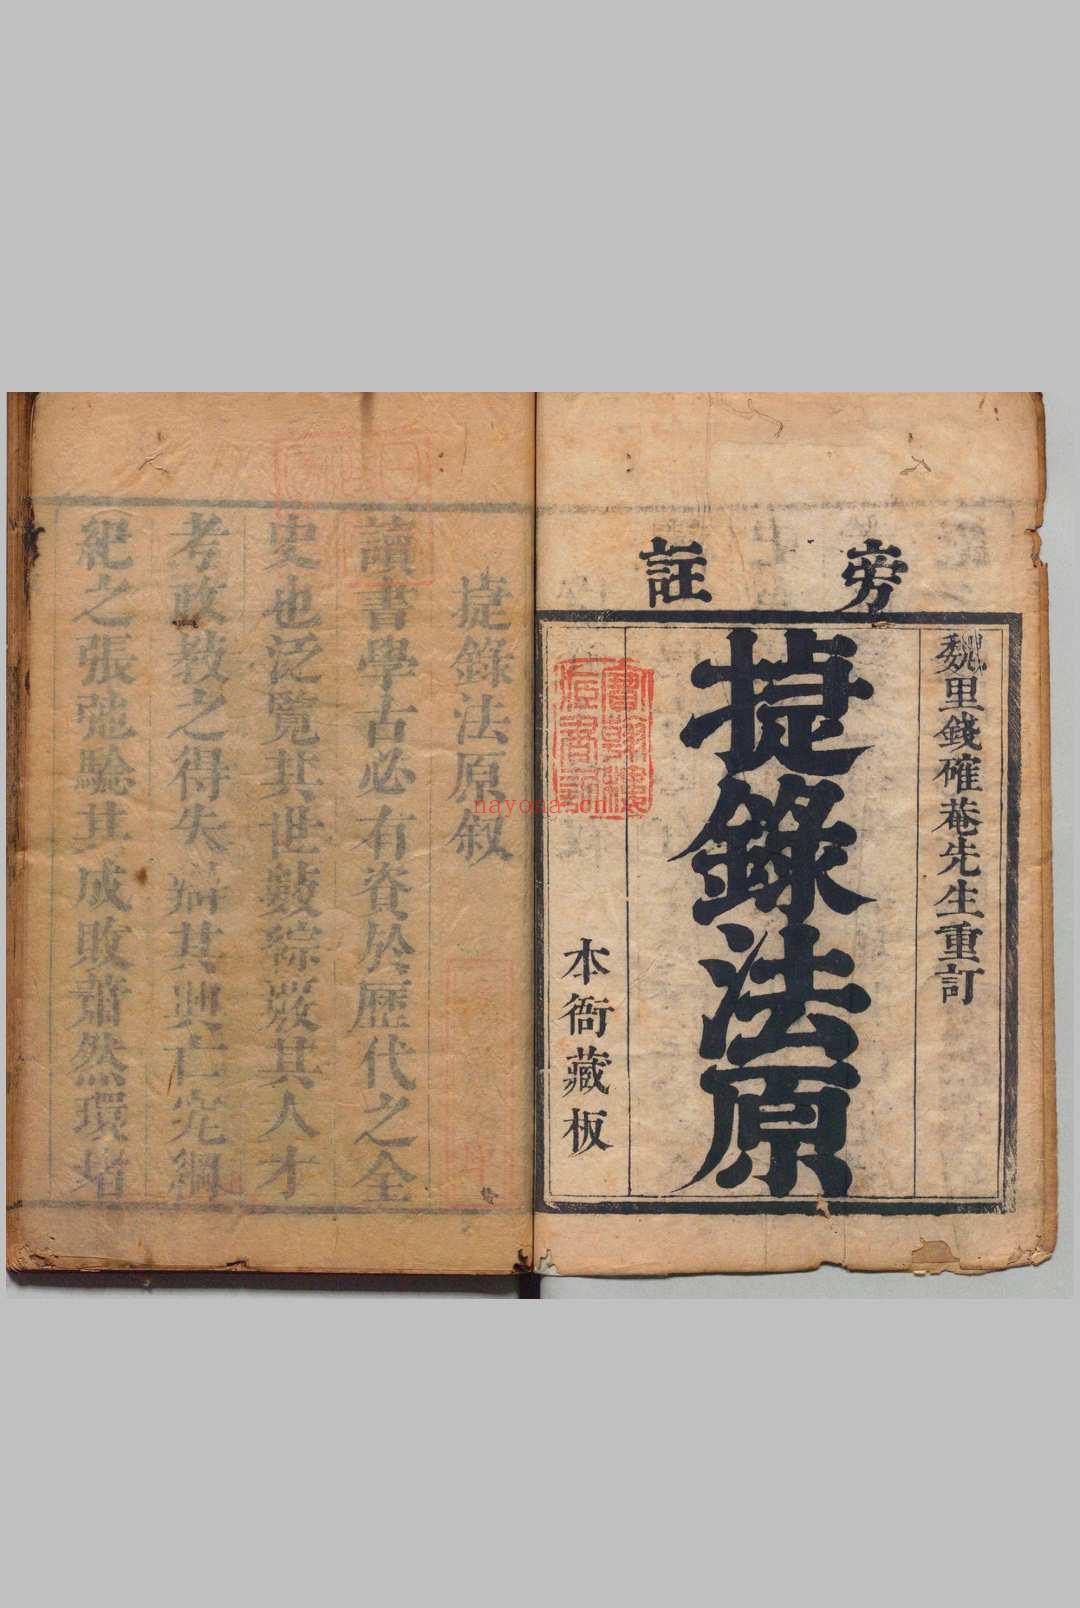 旁註
魏里錢確菴先生重訂
捷錄法原
本衙藏板
寶翰樓
nayona.cn
捷錄法原叙
讀書學古必有資於歷代之全
史也泛覽其世數綜嚴其人才
考政教之得失辯其興亡究綱
紀之張弛驗其成敗蕭然環堵